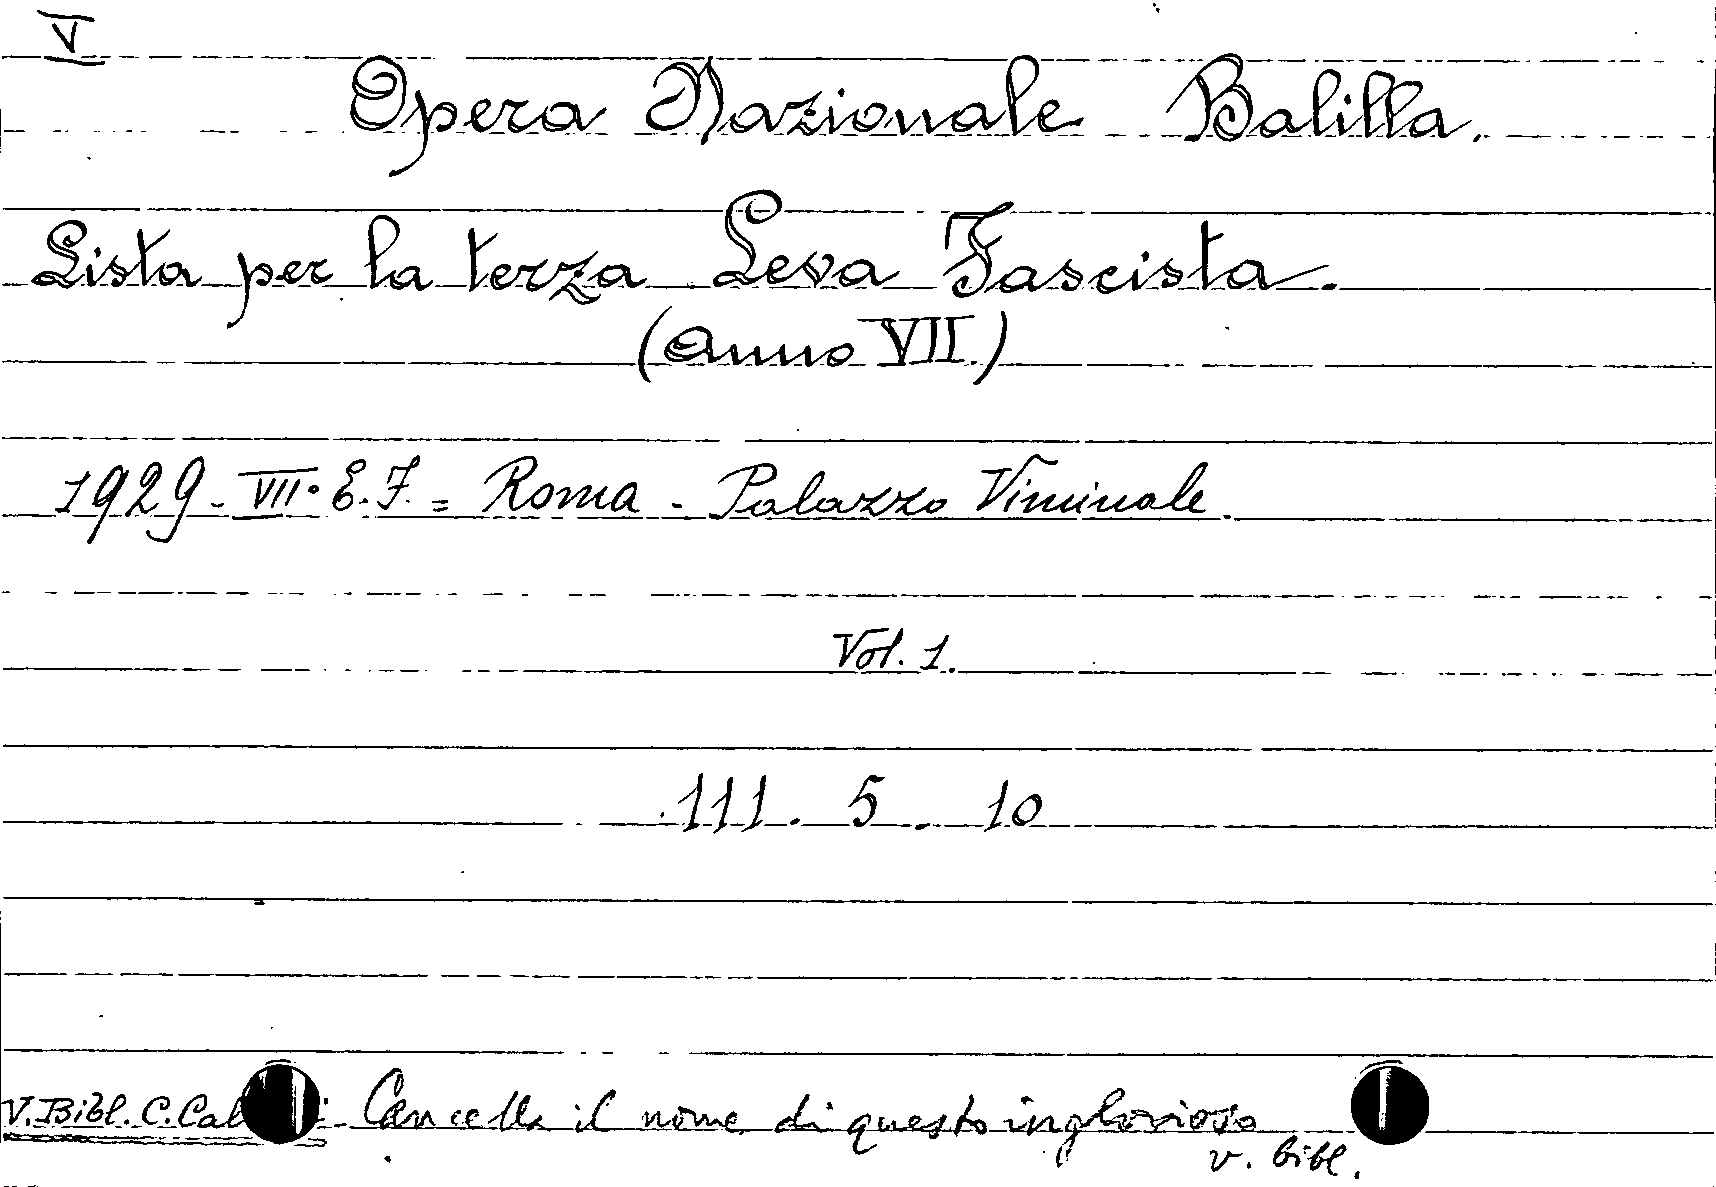 V
Opera Nazionale Balilla.
Lista per la terza Leva Fascista.
(Anno VII.)
1929 - VII° E.F. = Roma - Palazzo Viminale.
Vol. 1.
111. 5. 10
V. Bibl. C. Cal i - Cancella il nome di questo inglorioso
v. bibl.